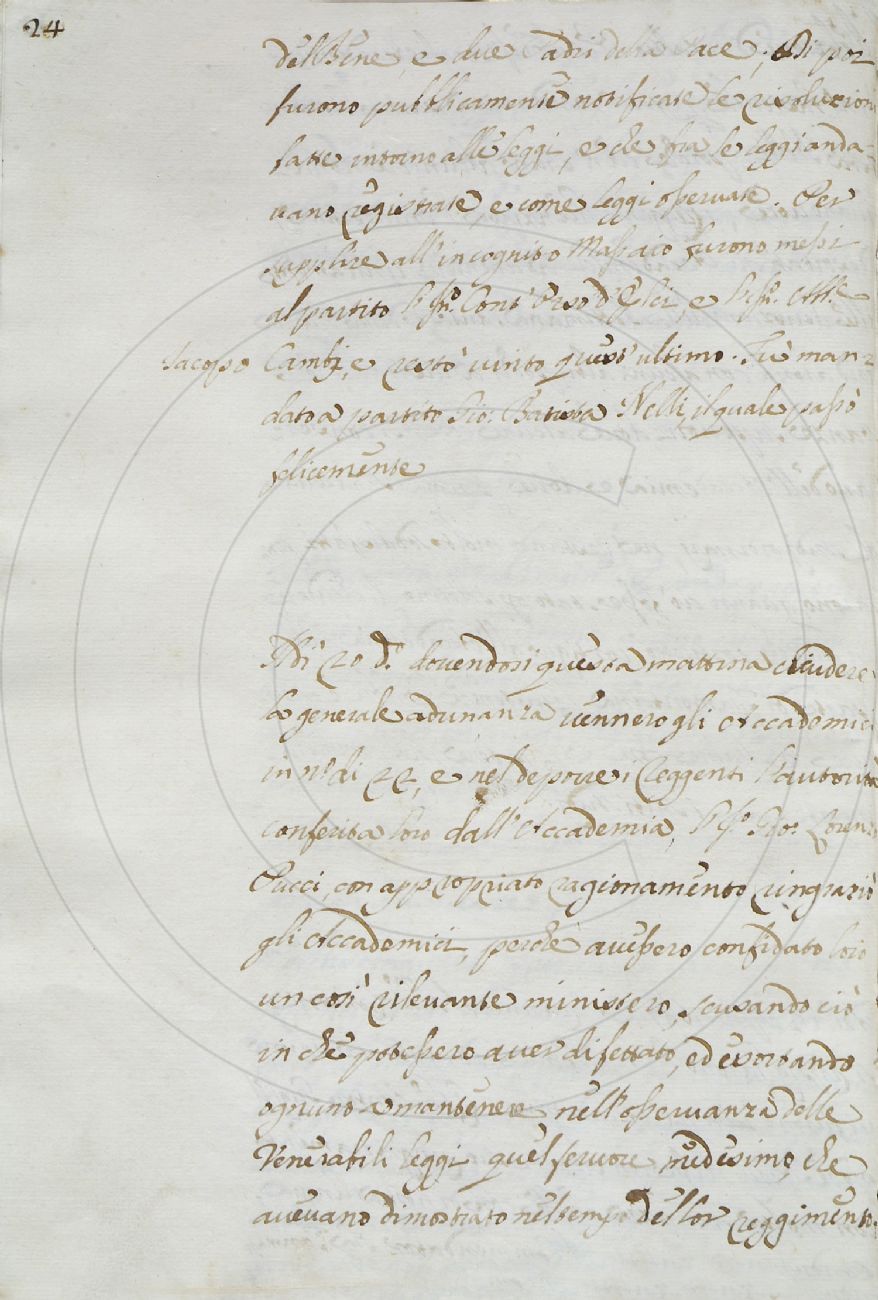 24
dell'Bene, e due Padri della Pace; Di poi
furono pubblicamente notificate le risoluzioni
fatte intorno alle leggi, e che fra le leggi anda-
vano registrate, e come leggi osservate. Per
supplire all'incognito Massaio furono messi
al partito l'Ill.mo Cont'Orso d'Elci, e l'Ill.
Jacopo Cambi, e restò vinto quest'ultimo. Fù man-
dato a partito Gio: Batista Nelli, il quale passò
felicemente
Adì 20 d.o dovendosi questa mattina chiudere
la generale adunanza vennero gli Accademici
in n.o di 22, e nel deporre i Reggenti l'autorità
conferita loro dall'Accademia, l'Ill. Lorenzo
Pucci, con appropriato ragionamento ringraziò
gli Accademici, perchè avessero confidato loro
un così rilevante ministero, scusando ciò
in che potessero aver difettato, ed esortando
ognuno a mantenere nell'osservanza delle
Venerabili leggi quel fervore medesimo, che
avevano dimostrato nel tempo dellor reggimento.